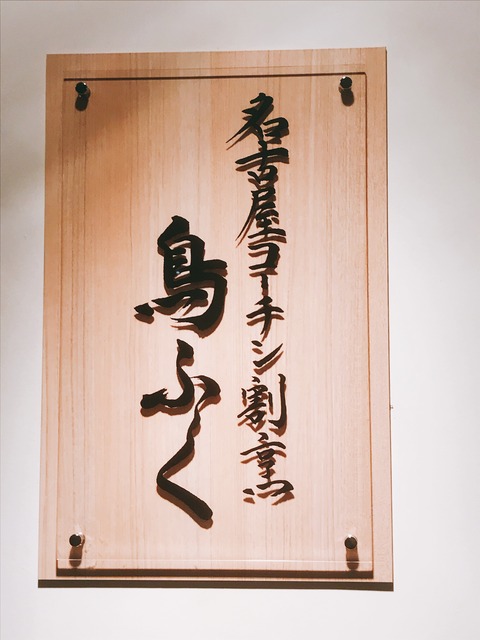 名古屋コーチン割烹
鳥ふく